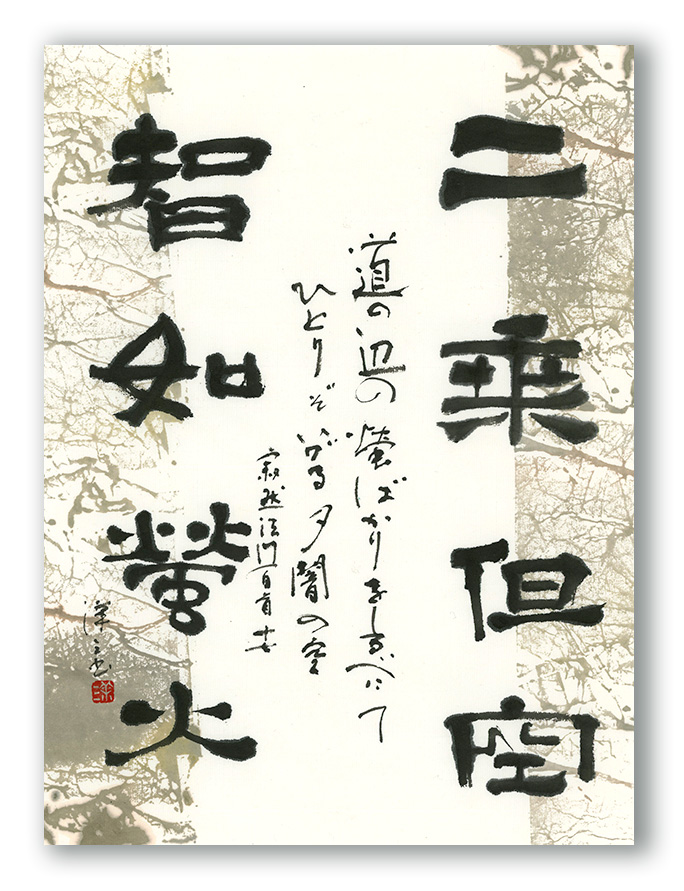 二乗但空
道の辺の螢ばかりをしるべにて
ひとりぞいづる夕闇の空
寂然法門百首
智如螢火